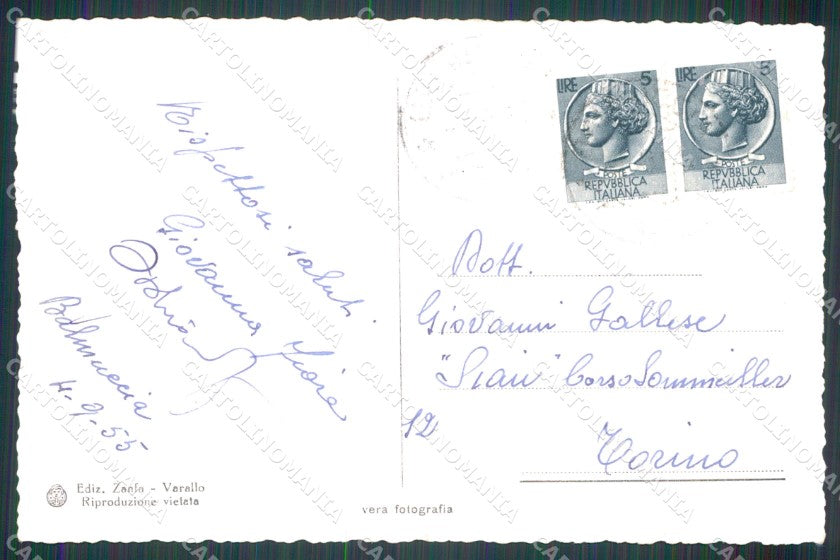 Rispettosi saluti.
Giovanna Fiore
Balmuccia
4-9-55
Ediz. Zanfa - Varallo
Riproduzione vietata
vera fotografia
LIRE 5
POSTE
REPVBBLICA
ITALIANA
LIRE 5
POSTE
REPVBBLICA
ITALIANA
Dott.
Giovanni Gallese
Corso Sommeiller
12
Torino
CARTOLINOMANIA